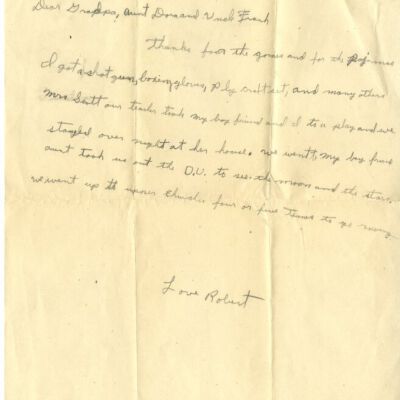 Dear Gradps, aunt Dor and Uncle Frank
Thanks for the games and for the pajamas
I got a shot gun, boxing gloves, Ply craft set, and many others
Mrs Scott our teacher took my boy friend and I to a play and we
stayed over night at her house. we went my boy friend
aunt took us out the D.U. to see the moon and the stars.
we went up to church four or five times to go
Love Robert